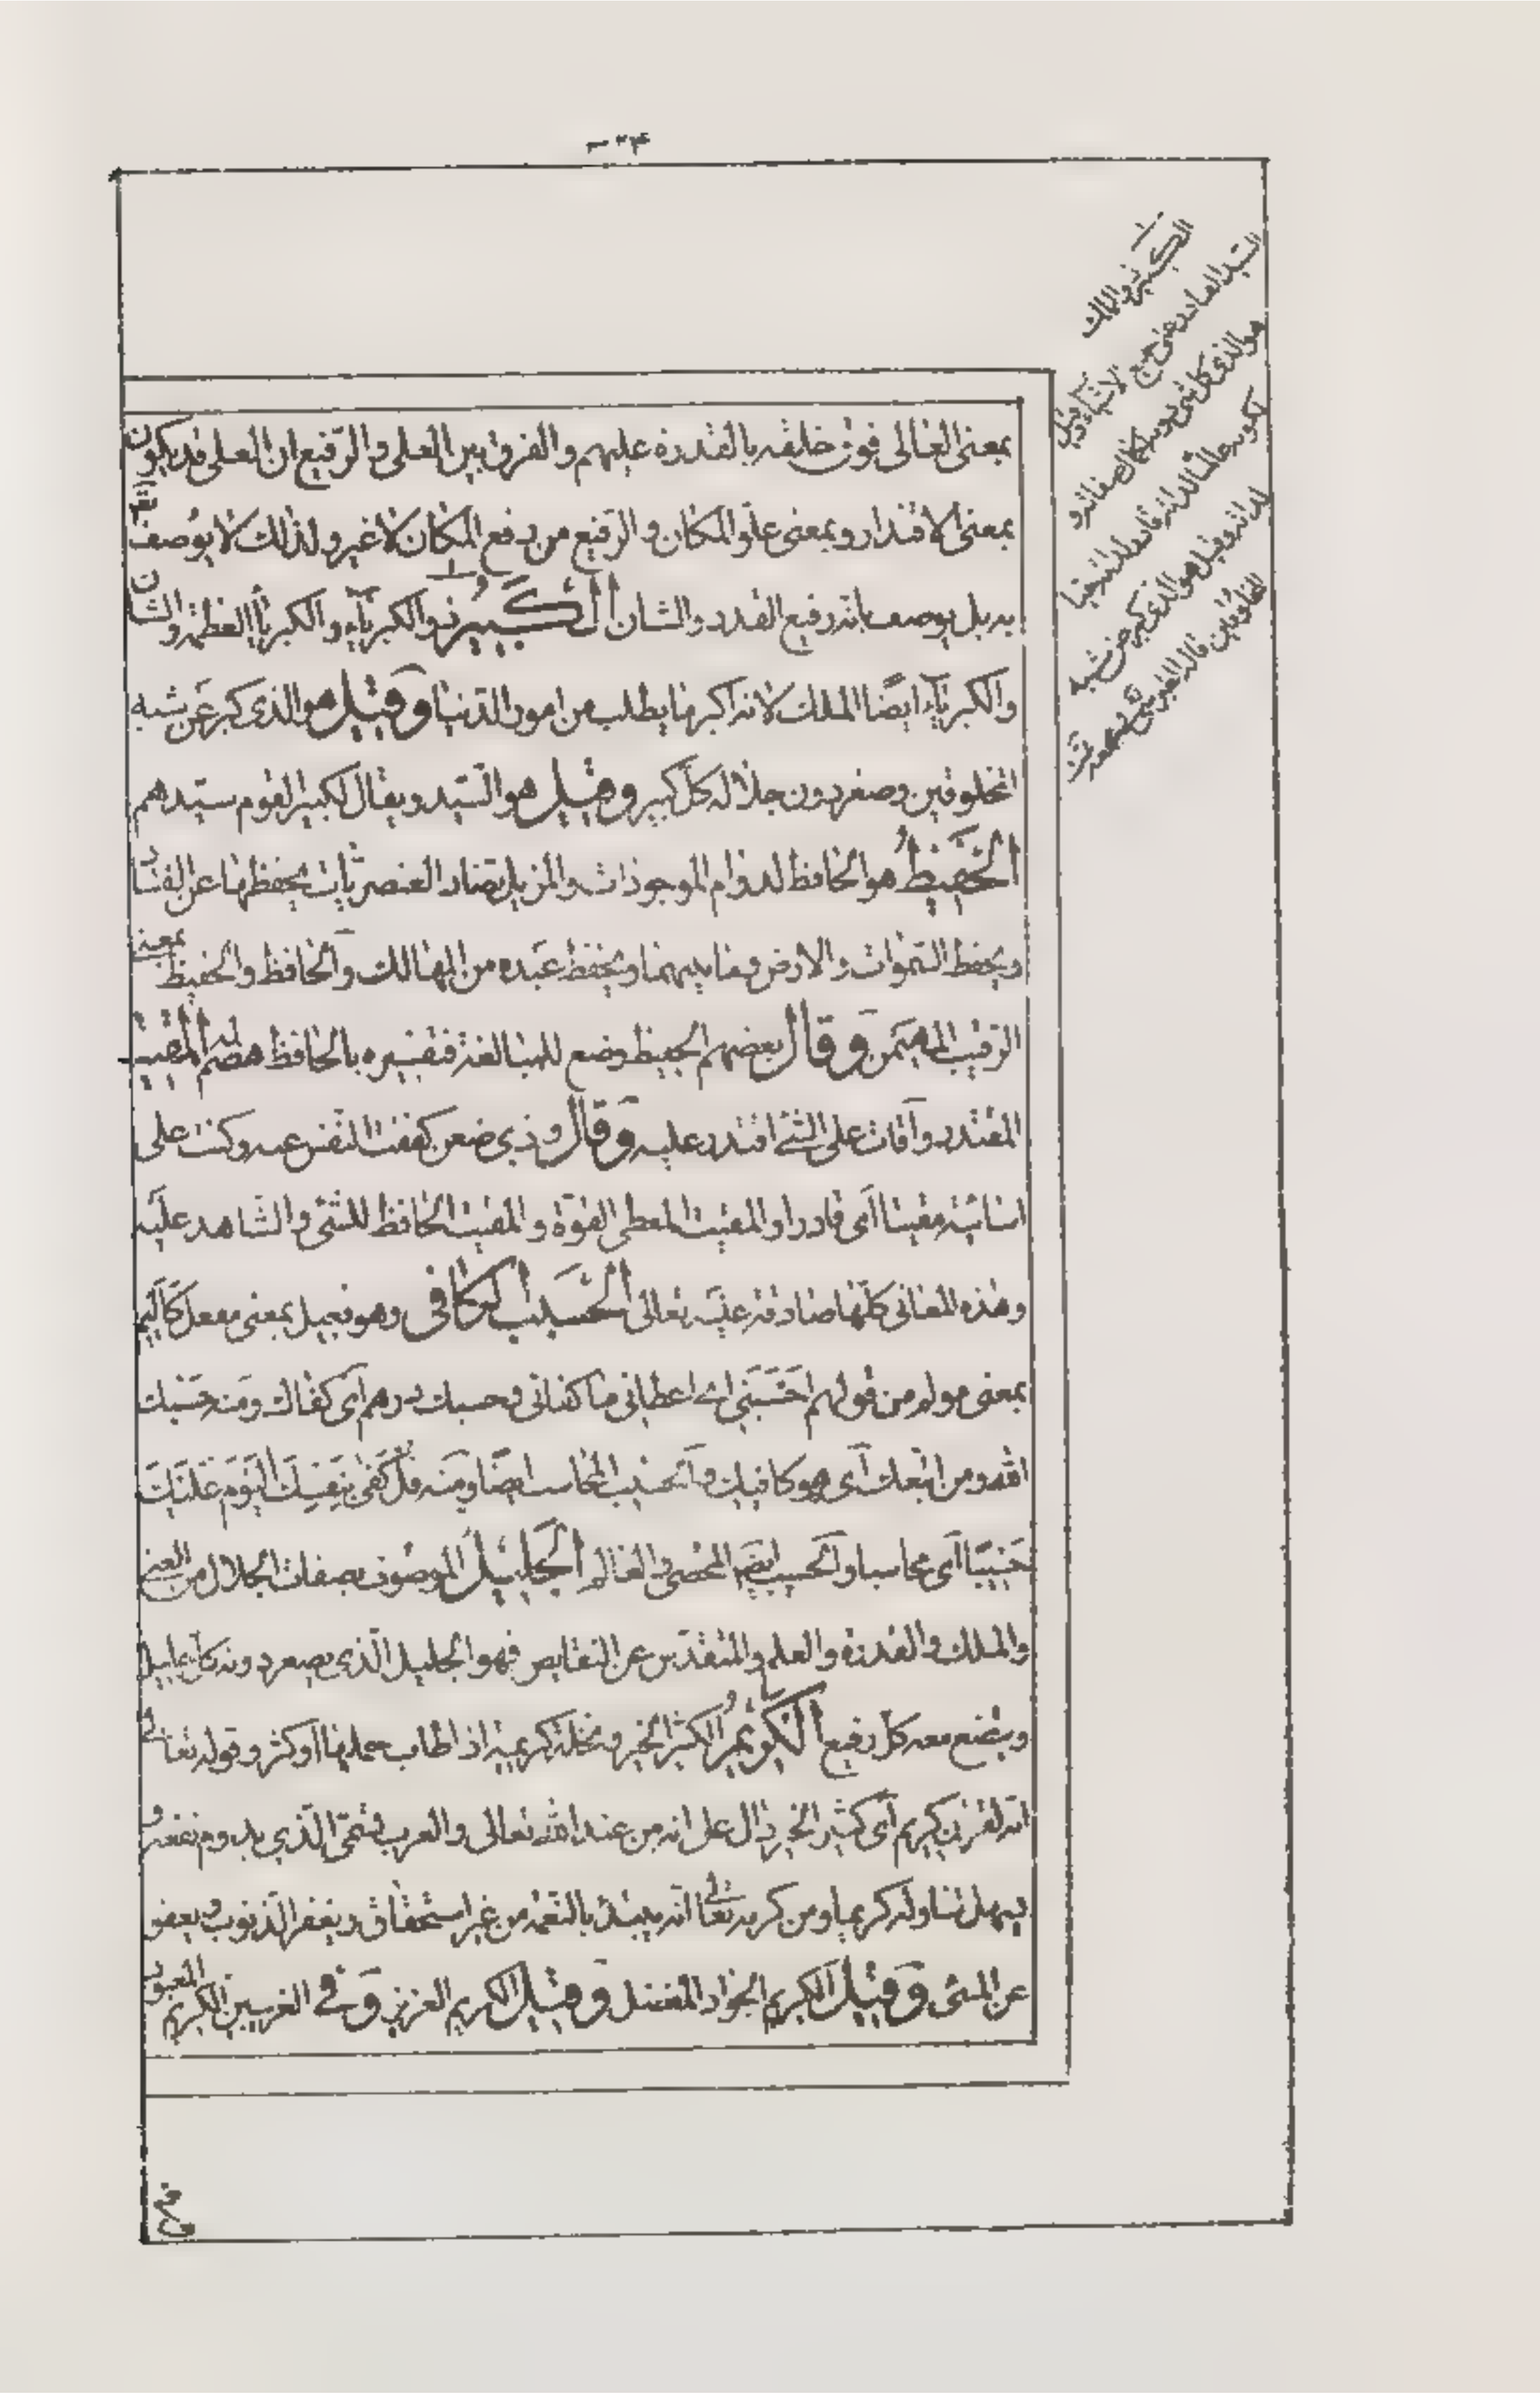 بمعنى الغالى فوق خلقه بالقدرة عليهم والفرق بين العلى والرفيع ان العلى قد يكون
بمعنى الاقتدار وبمعنى علو المكان والرفيع من رفع المكان لا غير ولذلك لا يوصف
به بل يوصف بانه رفيع القدر والشان الكبير ذو الكبرياء والكبرياء العظمة والشان
والكبرياء ايضا الملك لانه اكبر ما يطلب من امور الدنيا وقيل هو الذى كبر عن شبه
المخلوقين وصغر دون جلاله كل كبير وقيل هو السيد ويقال لكبير القوم سيدهم
الحفيظ هو الحافظ لدوام الموجودات والمزيل تضاد العنصريات يحفظها عن الفساد
ويحفظ السموات والارض وما بينهما ويحفظ عبده من المهالك والحافظ والحفيظ بمعنى
الرقيب المهيمن وقال بعضهم الحفيظ وضع للمبالغة فتفسيره بالحافظ هضم له المقيت
المقتدر واقات على الشئ اقتدر عليه وقال وذى ضغن كففت النفس عنه وكنت على
اسائته مقيتا اى قادرا والمقيت المعطى القوة والمقيت الحافظ للشئ والشاهد عليه
وهذه المعانى كلها صادقة عليه تعالى الحسيب الكافى وهو فعيل بمعنى مفعل كاليم
بمعنى مولم من قولهم احسبنى اى اعطانى ما كفانى وحسبك درهم اى كفاك ومنه حسبك
الله ومن اتبعك اى هو كافيك والحسيب المحاسب ايضا ومنه قل كفى بنفسك اليوم عليك
حسيبا اى محاسبا والحسيب ايضا المحصى والعالم الجليل الموصوف بصفات الجلال من الغنى
والملك والقدرة والعلم والمتقدس عن النقايص فهو الجليل الذى يصغر دونه كل جليل
ويتضع معه كل رفيع الكريم الكثير الخير ونخلة كريمة اذا طاب حملها او كثر وقوله تعالى
انه لقران كريم اى كثير الخير دال على انه من عند الله تعالى والعرب تسمى الذى يدوم نفعه و
يسهل تناوله كريما ومن كرمه تعالى انه يبتدئ بالنعمة من غير استحقاق ويغفر الذنوب ويعفو
عن المسئ وقيل الكريم الجواد المفضل وقيل الكريم العزيز وفى الغريبين الكريم
الكبير هو الملك
السيد القادر على جميع الاشياء وقيل